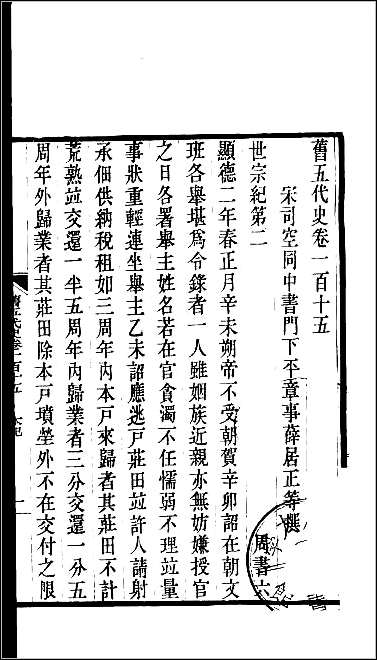 舊五代史卷一百十五
宋司空同中書門下平章事薛居正等撰
世宗紀第二
周書六
顯德二年春正月辛未朔帝不受朝賀辛卯詔在朝文
班各舉堪爲令錄者一人雖姻族近親亦無妨嫌授官
之日各署舉主姓名若在官貪濁不任懦弱不理竝量
事狀重輕連坐舉主乙未詔應逃戸莊田竝許人請射
承佃供納稅租如三周年內本戸來歸者其莊田不計
荒熟竝交還一半五周年內歸業者三分交還一分五
周年外歸業者其莊田除本戸墳塋外不在交付之限